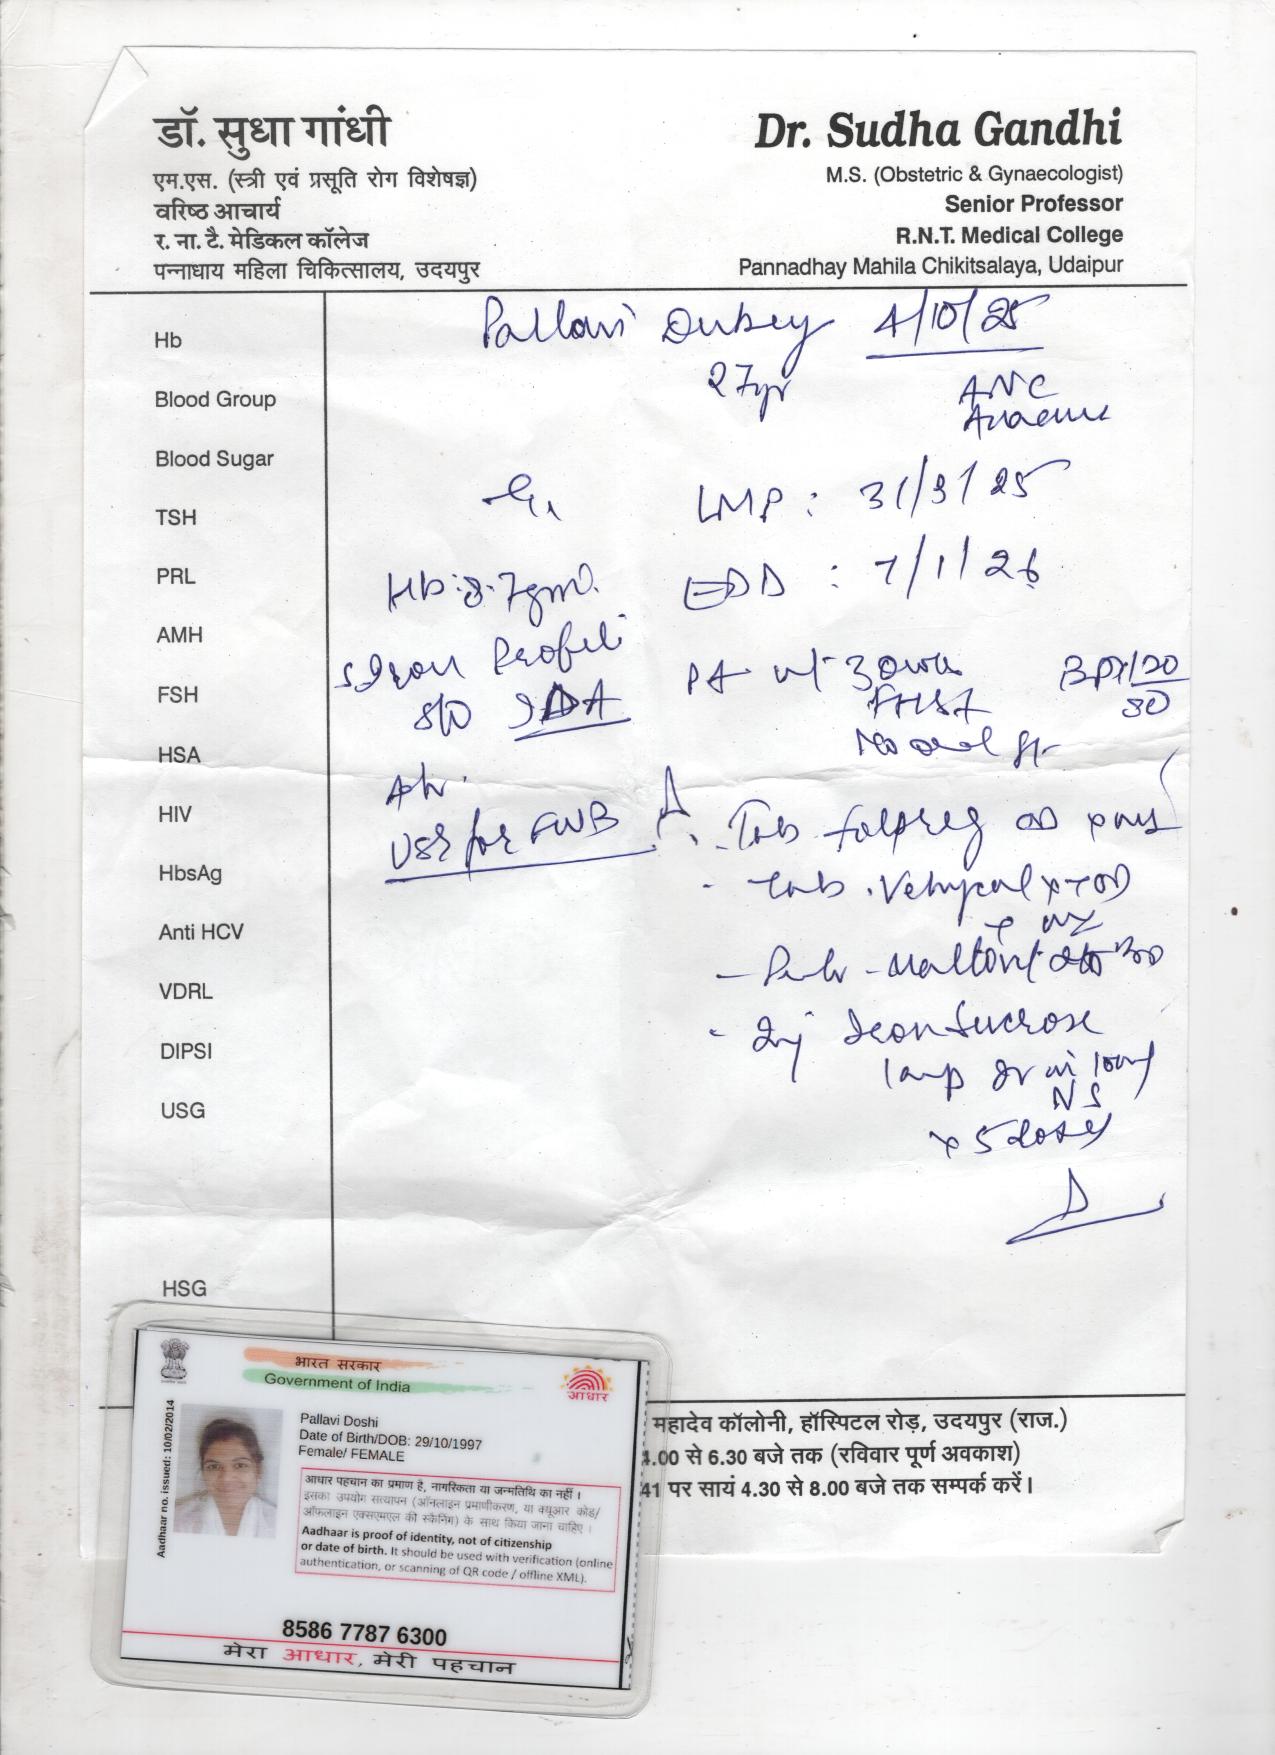 डॉ. सुधा गांधी
एम.एस. (स्त्री एवं प्रसूति रोग विशेषज्ञ)
वरिष्ठ आचार्य
र. ना. टै. मेडिकल कॉलेज
पन्नाधाय महिला चिकित्सालय, उदयपुर
Dr. Sudha Gandhi
M.S. (Obstetric & Gynaecologist)
Senior Professor
R.N.T. Medical College
Pannadhay Mahila Chikitsalaya, Udaipur
Hb
Blood Group
Blood Sugar
TSH
PRL
AMH
FSH
HSA
HIV
HbsAg
Anti HCV
VDRL
DIPSI
USG
HSG
Pallavi Dubey 4/10/25
27yr
ANC
LMP : 31/3/25
EDD : 7/1/26
Hb: 8.7gm
S Iron Profile
S/O IDA
BP 120/80
FHS
USG for FWB
Tab Folpreg OD
Tab.
Inj Iron Sucrose
1 amp IV in 100ml
NS
x 5 doses
महादेव कॉलोनी, हॉस्पिटल रोड़, उदयपुर (राज.)
.00 से 6.30 बजे तक (रविवार पूर्ण अवकाश)
41 पर सायं 4.30 से 8.00 बजे तक सम्पर्क करें।
भारत सरकार
Government of India
आधार
Aadhaar no. issued: 10/02/2014
Pallavi Doshi
Date of Birth/DOB: 29/10/1997
Female/ FEMALE
आधार पहचान का प्रमाण है, नागरिकता या जन्मतिथि का नहीं।
इसका उपयोग सत्यापन (ऑनलाइन प्रमाणीकरण, या क्यूआर कोड/
ऑफलाइन एक्सएमएल की स्कैनिंग) के साथ किया जाना चाहिए।
Aadhaar is proof of identity, not of citizenship
or date of birth. It should be used with verification (online
authentication, or scanning of QR code / offline XML).
8586 7787 6300
मेरा आधार, मेरी पहचान